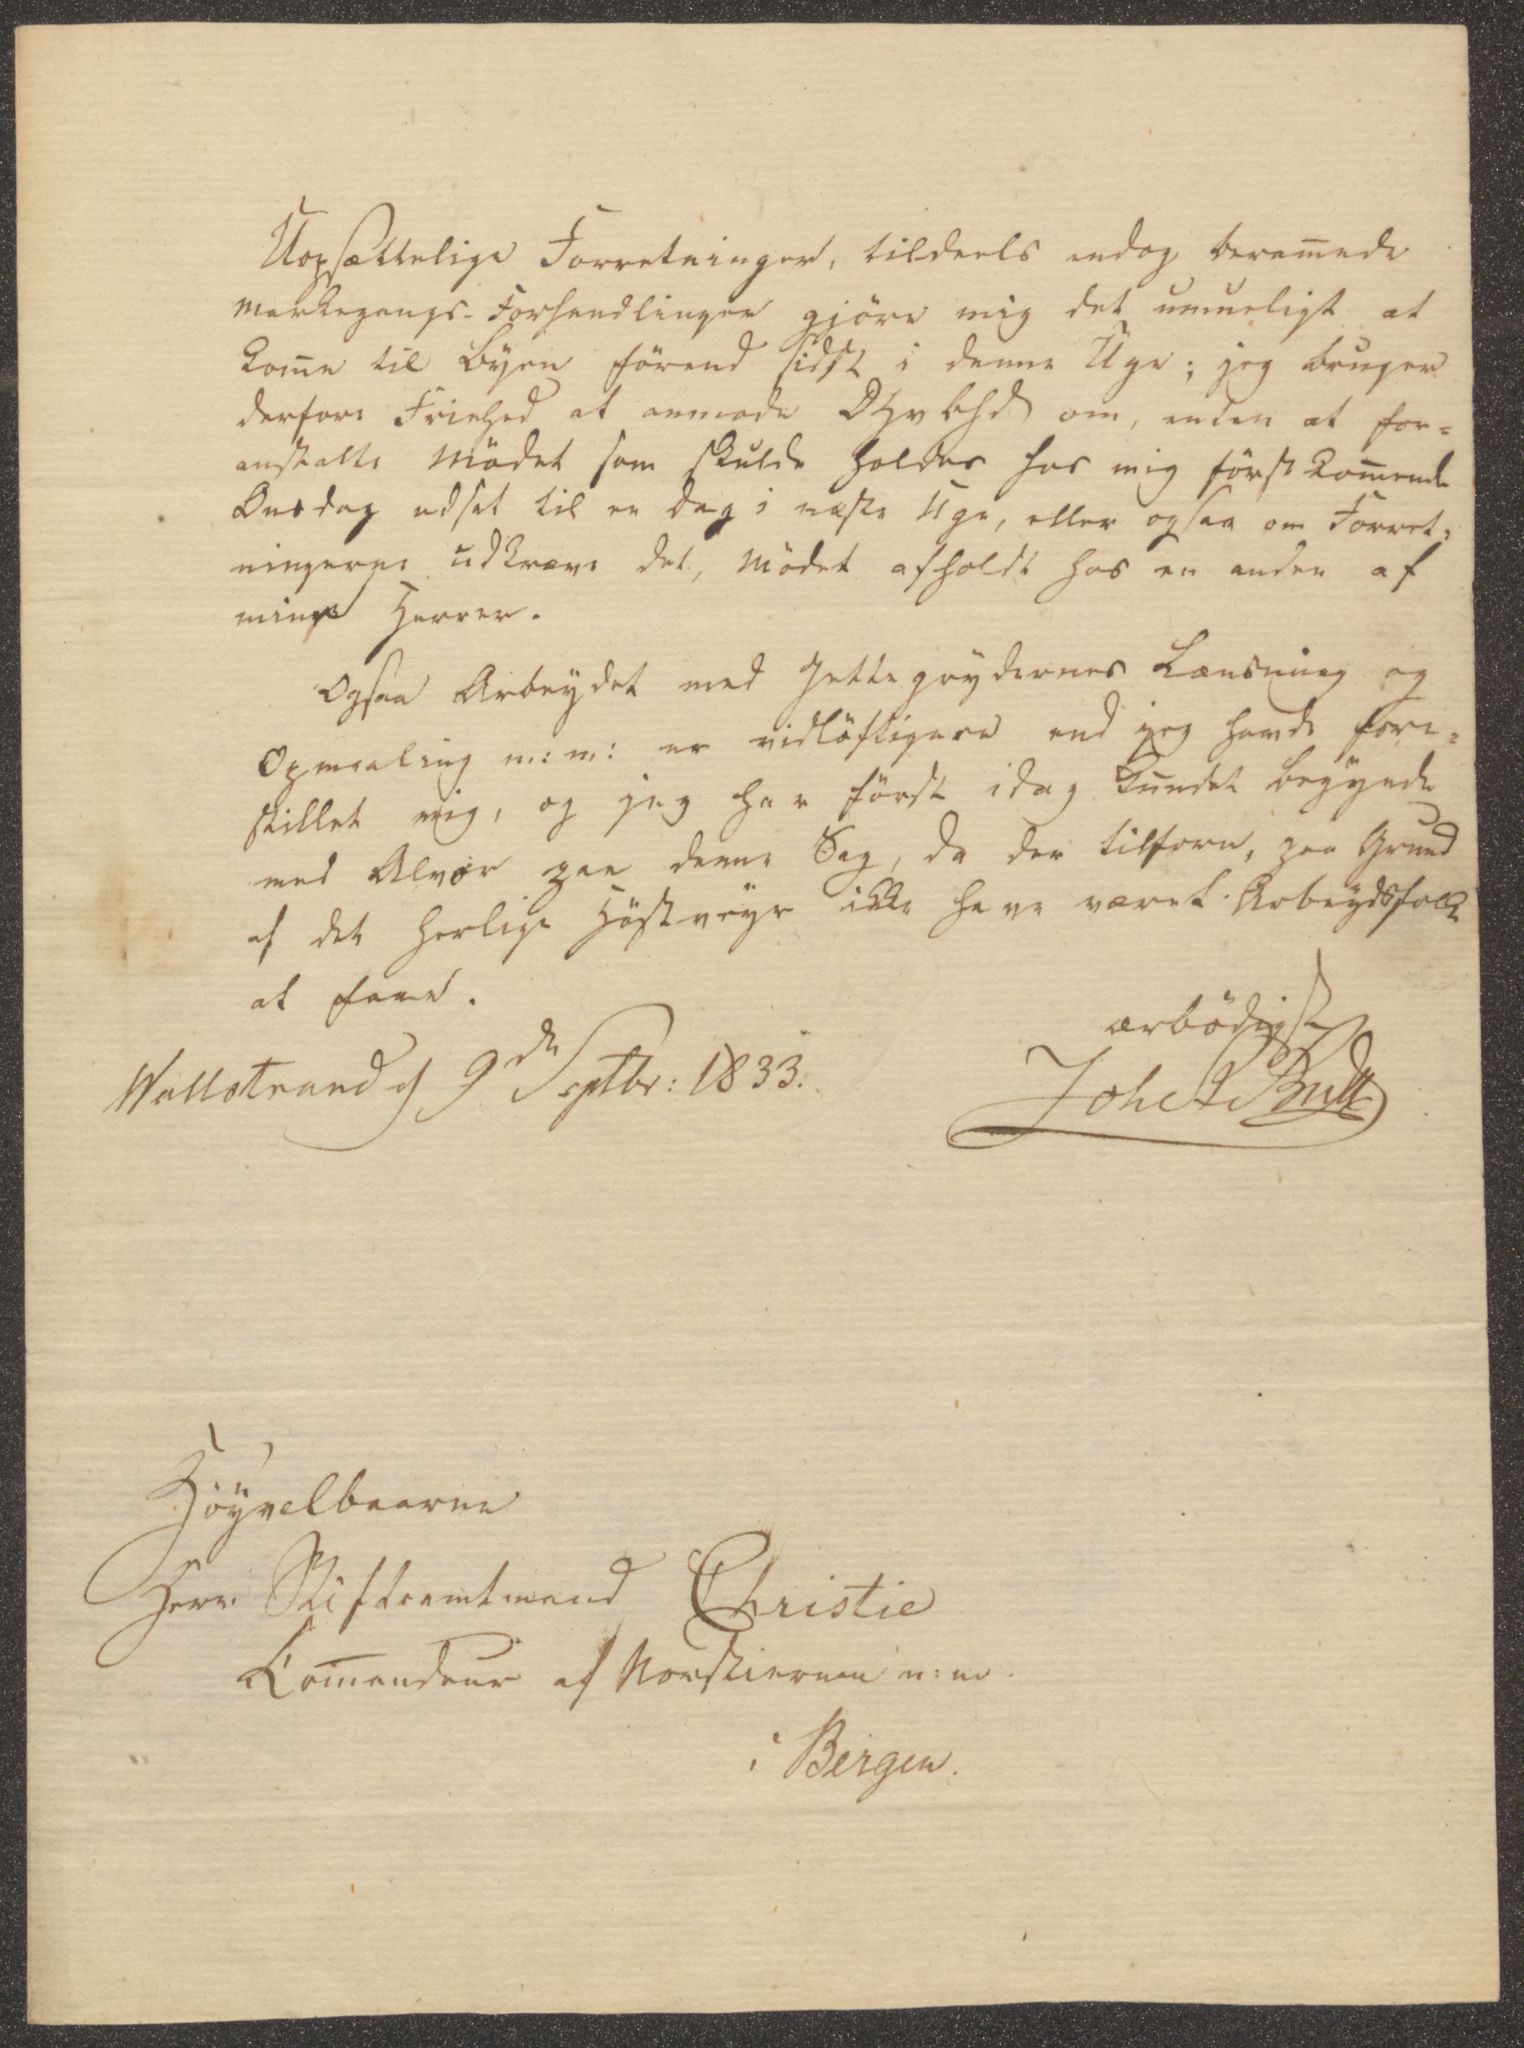 Uopsættelige Forretninger, tildeels endog beram̅ede
Markegangs-Forhandlinger gjöre mig det umueligt at
kom̅e til Byen förend sidst i denne Uge; jeg bruger
derfore Friehed at anmode DHvbhd om, enten at for=
anstalte Mödet som skulde holdes hos mig först kom̅ende
Onsdag udsat til en Dag i næste Uge, eller ogsaa om Forret=
ningerne udkræve det, Mödet afholdt hos en anden af
mine Herrer.
Ogsaa Arbeydet med Jettegrydernes Lænsning og
Opmaaling m: m: er vidlöftigere end jeg havde fore=
stillet mig, og jeg har först idag kundet begynde
med Alvor paa denne Sag, da der tilforn, paa Grund
af det herlige Höstveyr ikke have været Arbeydsfolk
at faae.
Wallestrand d 9de Septbr: 1833.
ærbödigst
Joh Bull
Höyvelbaarne
Herr Stiftsamtmand Christie
Com̅andeur af Nordstiernen m: m.
i Bergen.